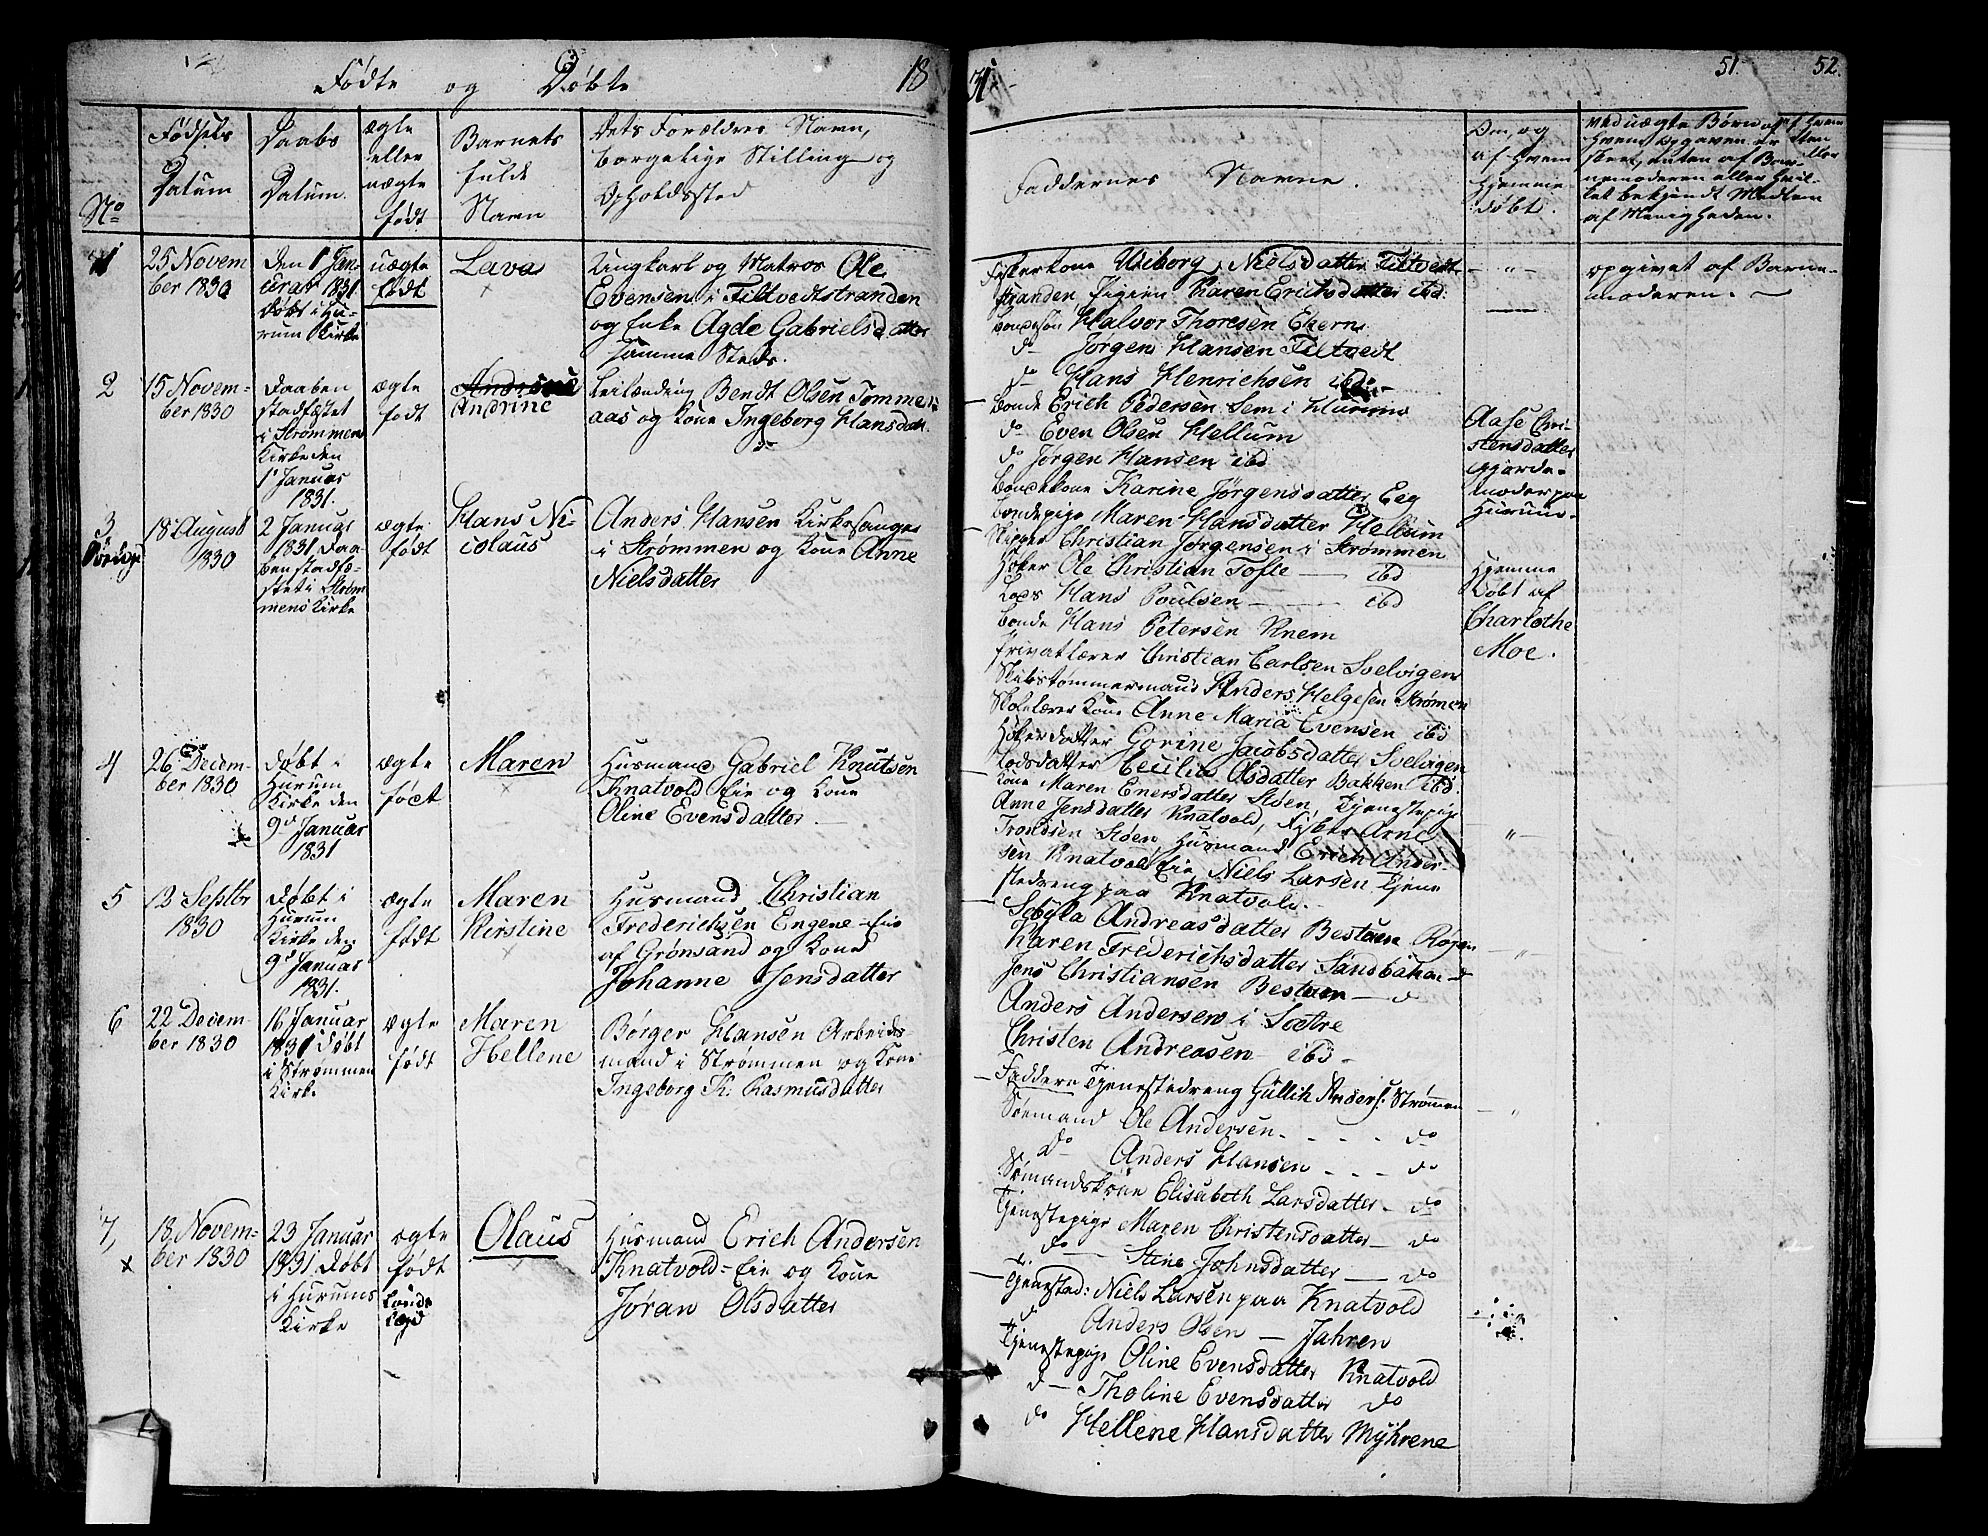 Fødte og Døbte 18
31.
51. 52.
No
Fødsels
Datum
Daabs
Datum.
ægte
eller
uægte
født
Barnets
fulde
Navn
Dets Forældres Navn,
borgelige Stilling og
Opholdssted
Faddernes Navne.
Om, og
af hvem
hjemme-
døbt.
Ved uægte Børn af
hvem Opgaven er
skeet, enten af Bar-
nemoderen eller hvil-
ket bekjendt Medlem
af Menigheden.
1
25 Novem
ber 1830
Den 1 Jan-
uar 1831
døbt i Hu-
rum Kirke
uægte
født
Lava
Ungkarl og Matros Ole
Evensen i Filtvedtstranden
og Enke Agde Gabrielsdatter
samme Steds.
Fiskerkone Wiborg Nielsdatter Filtvedt
stranden Pigen Karen Erichsdatter ibd.
Bondesøn Halvor Thoresen Ekern
do Jørgen Hansen Filtvedt
do Hans Henrichsen ibd.
opgivet af Barne-
moderen.
2
15 Novem-
ber 1830
Daaben
stadfæstet
i Strømmen
Kirke den
1 Januar
1831.
ægte
født
Andrine
Leilænding Bendt Olsen Tømmer
aas og Kone Ingeborg Hansdatt.
Bonde Erich Pedersen Sem i Hurum
do Even Olsen Hellum
do Jørgen Hansen ibd
Bondekone Karine Jørgensdatter Eeg
Bondepige Maren Hansdatter Hellum
Aase Chri-
stensdatter
Gjorde-
moder paa
Hurum.
3
18 August
1830
2 Januar
1831. Daa-
ben stadfæ-
stet i Strøm-
mens Kirke
ægte
født
Hans Ni-
colaus
Anders Hansen Kirkesanger
i Strømmen og Kone Anne
Nielsdatter
Skipper Christian Jørgensen i Strømmen
Høker Ole Christian Tofte ibd
Lods Hans Poulsen ibd
Bonde Hans Petersen Knem
Privatlærer Christian Carlsen Svelvigen
Skibstømmermand Anders Helgesen Strømen
Skolelærer Kone Anne Maria Evensen ibd
Høkerdatter Gorine Jacobsdatter Svelvigen
Lodsdatter Cecilia Olsdatter Bakken ibd.
Hjemme
Døbt af
Charlothe
Moe.
4
26 Decem-
ber 1830
døbt i
Hurum
Kirke den
9 Januar
1831
ægte
født
Maren
Husmand Gabriel Knutsen
Knatvold Eie og Kone
Oline Evensdatter.
Kone Maren Enersdatter Stöen, Tjenestepige
Anne Jensdatter Knatvold, Fisker Arne
Trondsen Stöen, Husmand Erich Ander-
sen Knatvold Eie, Niels Larsen Tjene
stedreng paa Knatvold.
5
13 Septbr
1830
døbt i
Hurum
Kirke den
9 Januar
1831.
ægte
født
Maren
Kirstine
Husmand Christian
Frederichsen Engene-Eie
af Grönsand og Kone
Johanne Jensdatter
Sibÿla Andreasdatter Bestuen Røgen
Karen Frederichsdatter Sandbakken d
Jens Christiansen Bestuen d
Anders Andersen i Sætre
Christen Andreasen ibd
6
22 Decem-
ber 1830
16 Januar
1831 døbt
i Strømmen
Kirke
ægte
født
Maren
Hellene
Börger Hansen Arbeids-
mand i Strømmen og Kone
Ingeborg K. Rasmusdatter
Faddere Tjenestedreng Gullik Anders. Strømmen
Sømand Ole Andersen do
do Anders Hansen do
Sømandskone Elisabeth Larsdatter do
Tjenestepige Maren Christensdatter do
do Stine Johnsdatter do
7,
18 Novem-
ber 1830
23 Januar
1831 døbt
i Hurums
Kirke
ægte
født
Olaus
Husmand Erich Andersen
Knatvold-Eie og Kone
Jøran Olsdatter
Tjenestd: Niels Larsen paa Knatvold
d Anders Olsen Jahren
Tjenestepige Oline Evensdatter Knatvold
d Tholine Evensdatter do
do Hellene Hansdatter Mÿhrene